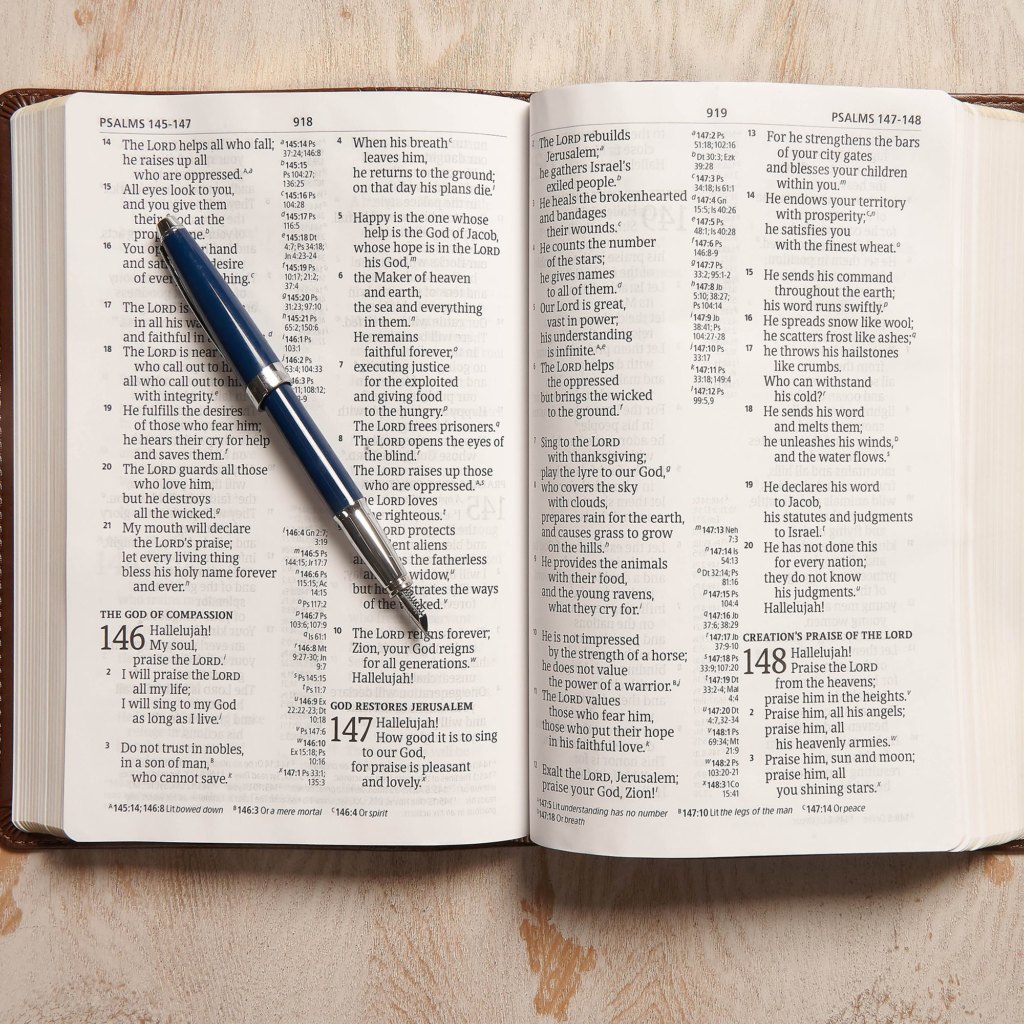 PSALMS 145-147
918
14 The LORD helps all who fall;
he raises up all
who are oppressed.A,a
15 All eyes look to you,
and you give them
their food at the
time.b
16 You hand
and desire
of thing.c
17 The LORD is
in all his
and faithful in d
18 The LORD is near
who call out to
all who call out to
with integrity.e
19 He fulfills the desires
of those who fear him;
he hears their cry for help
and saves them.f
20 The LORD guards all those
who love him,
but he destroys
all the wicked.g
21 My mouth will declare
the LORD's praise;
let every living thing
bless his holy name forever
and ever.h
THE GOD OF COMPASSION
146 Hallelujah!
My soul,
praise the LORD.i
2 I will praise the LORD
all my life;
I will sing to my God
as long as I live.j
3 Do not trust in nobles,
in a son of man,B
who cannot save.k
a145:14 Ps
37:24; 146:8
b145:15
Ps 104:27;
136:25
c145:16 Ps
104:28
d145:17 Ps
116:5
e145:18 Dt
4:7; Ps 34:18;
Jn 4:23-24
f145:19 Ps
10:17; 21:2;
37:4
g145:20 Ps
31:23; 97:10
h145:21 Ps
65:2; 150:6
i146:1 Ps
103:1
j146:2 Ps
63:4; 104:33
146:3 Ps
108:12;
l146:4 Gn 2:7;
3:19
m146:5 Ps
144:15; Jr 17:7
n146:6 Ps
115:15; Ac
14:15
o Ps 117:2
p146:7 Ps
103:6; 107:9
q Is 61:1
r146:8 Mt
9:27-30; Jn
9:7
s Ps 145:14
t Ps 11:7
u146:9 Ex
22:22-23; Dt
10:18
v Ps 147:6
w146:10
Ex 15:18; Ps
10:16
x147:1 Ps 33:1;
135:3
4 When his breathC
leaves him,
he returns to the ground;
on that day his plans die.l
5 Happy is the one whose
help is the God of Jacob,
whose hope is in the LORD
his God,m
6 the Maker of heaven
and earth,
the sea and everything
in them.n
He remains
faithful forever,o
7 executing justice
for the exploited
and giving food
to the hungry.p
The LORD frees prisoners.q
8 The LORD opens the eyes of
the blind.r
The LORD raises up those
who are oppressed.A,s
The LORD loves
the righteous.t
LORD protects
aliens
the fatherless
widow,u
but he the ways
of the wicked.v
10 The LORD reigns forever;
Zion, your God reigns
for all generations.w
Hallelujah!
GOD RESTORES JERUSALEM
147 Hallelujah!
How good it is to sing
to our God,
for praise is pleasant
and lovely.x
A145:14; 146:8 Lit bowed down B146:3 Or a mere mortal C146:4 Or spirit
919
PSALMS 147-148
2 The LORD rebuilds
Jerusalem;a
he gathers Israel's
exiled people.b
3 He heals the brokenhearted
and bandages
their wounds.c
4 He counts the number
of the stars;
he gives names
to all of them.d
5 Our Lord is great,
vast in power;
his understanding
is infinite.A,e
6 The LORD helps
the oppressed
but brings the wicked
to the ground.f
7 Sing to the LORD
with thanksgiving;
play the lyre to our God,g
8 who covers the sky
with clouds,
prepares rain for the earth,
and causes grass to grow
on the hills.h
9 He provides the animals
with their food,
and the young ravens,
what they cry for.i
10 He is not impressed
by the strength of a horse;
he does not value
the power of a warrior.B,j
11 The LORD values
those who fear him,
those who put their hope
in his faithful love.k
12 Exalt the LORD, Jerusalem;
praise your God, Zion!l
a147:2 Ps
51:18; 102:16
b Dt 30:3; Ezk
39:28
c147:3 Ps
34:18; Is 61:1
d147:4 Gn
15:5; Is 40:26
e147:5 Ps
48:1; Is 40:28
f147:6 Ps
146:8-9
g147:7 Ps
33:2; 95:1-2
h147:8 Jb
5:10; 38:27;
Ps 104:14
i147:9 Jb
38:41; Ps
104:27-28
j147:10 Ps
33:17
k147:11 Ps
33:18; 149:4
l147:12 Ps
99:5,9
m147:13 Neh
7:3
n147:14 Is
54:13
o Dt 32:14; Ps
81:16
p147:15 Ps
104:4
q147:16 Jb
37:6; 38:29
r147:17 Jb
37:9-10
s147:18 Ps
33:9; 107:20
t147:19 Dt
33:2-4; Mal
4:4
u147:20 Dt
4:7,32-34
v148:1 Ps
69:34; Mt
21:9
w148:2 Ps
103:20-21
x148:3 1Co
15:41
13 For he strengthens the bars
of your city gates
and blesses your children
within you.m
14 He endows your territory
with prosperity;C,n
he satisfies you
with the finest wheat.o
15 He sends his command
throughout the earth;
his word runs swiftly.p
16 He spreads snow like wool;
he scatters frost like ashes;q
17 he throws his hailstones
like crumbs.
Who can withstand
his cold?r
18 He sends his word
and melts them;
he unleashes his winds,D
and the water flows.s
19 He declares his word
to Jacob,
his statutes and judgments
to Israel.t
20 He has not done this
for every nation;
they do not know
his judgments.u
Hallelujah!
CREATION'S PRAISE OF THE LORD
148 Hallelujah!
Praise the LORD
from the heavens;
praise him in the heights.v
2 Praise him, all his angels;
praise him, all
his heavenly armies.w
3 Praise him, sun and moon;
praise him, all
you shining stars.x
A147:5 Lit understanding has no number B147:10 Lit the legs of the man C147:14 Or peace
D147:18 Or breath